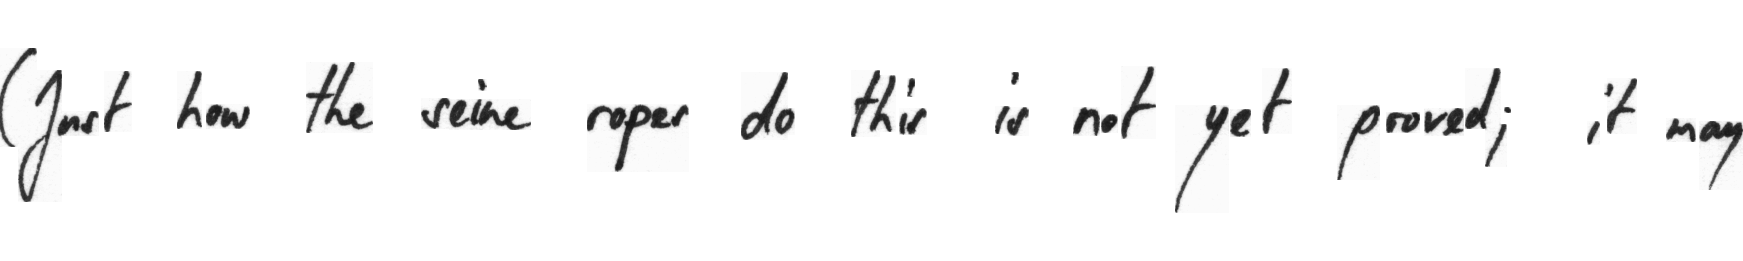 (Just how the seine ropes do this is not yet proved; it may